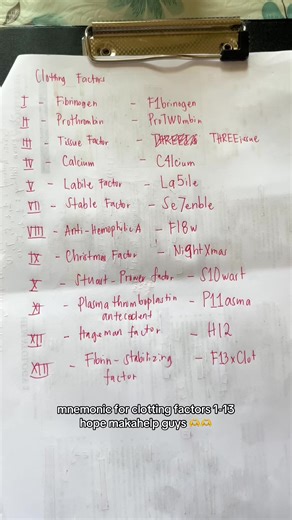 Clotting Factors
I - Fibrinogen - F1brinogen
II - Prothrombin - ProTW0mbin
III - Tissue Factor - THREEissue
IV - Calcium - C4lcium
V - Labile Factor - La5ile
VII - Stable Factor - Se7enble
VIII - Anti-Hemophilic A - F18w
IX - Christmas Factor - Ni9htXmas
X - Stuart-Prower factor - S10wart
XI - Plasma thromboplastin - P11asma
antecedent
XII - Hageman factor - H12
XIII - Fibrin-stabilizing - F13xClot
factor
mnemonic for clotting factors 1-13
hope makahelp guys 🫶🫶